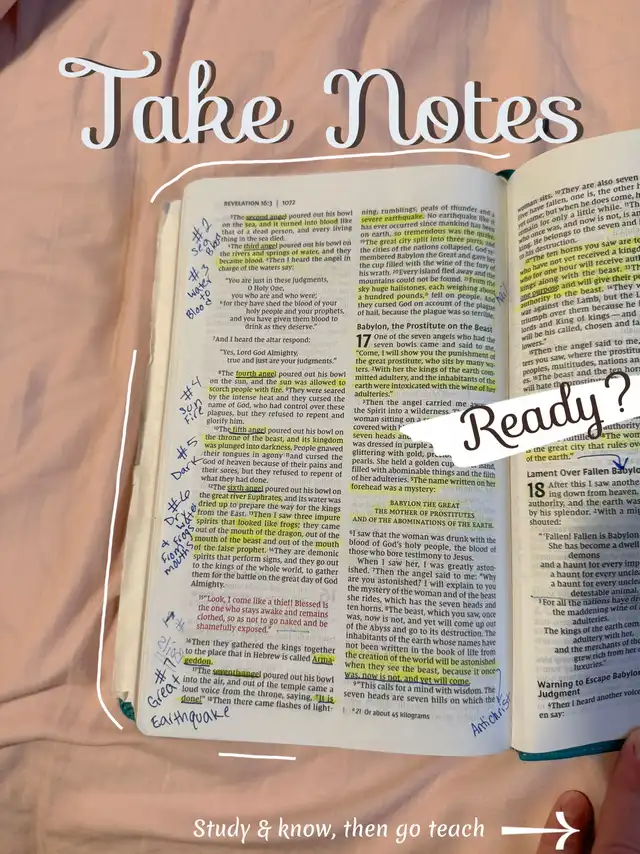 Take Notes
REVELATION 16:3 | 1072
³The second angel poured out his bowl
on the sea, and it turned into blood like
that of a dead person, and every living
thing in the sea died.
⁴The third angel poured out his bowl on
the rivers and springs of water, and they
became blood. ⁵Then I heard the angel in
charge of the waters say:
"You are just in these judgments,
O Holy One,
you who are and who were;
⁶for they have shed the blood of your
holy people and your prophets,
and you have given them blood to
drink as they deserve."
⁷And I heard the altar respond:
"Yes, Lord God Almighty,
true and just are your judgments."
⁸The fourth angel poured out his bowl
on the sun, and the sun was allowed to
scorch people with fire. ⁹They were seared
by the intense heat and they cursed the
name of God, who had control over these
plagues, but they refused to repent and
glorify him.
¹⁰The fifth angel poured out his bowl on
the throne of the beast, and its kingdom
was plunged into darkness. People gnawed
their tongues in agony ¹¹and cursed the
God of heaven because of their pains and
their sores, but they refused to repent of
what they had done.
¹²The sixth angel poured out his bowl on
the great river Euphrates, and its water was
dried up to prepare the way for the kings
from the East. ¹³Then I saw three impure
spirits that looked like frogs; they came
out of the mouth of the dragon, out of the
mouth of the beast and out of the mouth
of the false prophet. ¹⁴They are demonic
spirits that perform signs, and they go out
to the kings of the whole world, to gather
them for the battle on the great day of God
Almighty.
¹⁵"Look, I come like a thief! Blessed is
the one who stays awake and remains
clothed, so as not to go naked and be
shamefully exposed."
¹⁶Then they gathered the kings together
to the place that in Hebrew is called Arma-
geddon.
¹⁷The seventh angel poured out his bowl
into the air, and out of the temple came a
loud voice from the throne, saying, "It is
done!" ¹⁸Then there came flashes of light-
#2
Sea
Blood
#3
Water
Blood
#4
Sun
Fire
#5
Dark
#6
mouths
#7
Great
Earthquake
ning, rumblings, peals of thunder and a
severe earthquake. No earthquake like it
has ever occurred since mankind has been
on earth, so tremendous was the quake.
¹⁹The great city split into three parts, and
the cities of the nations collapsed. God re-
membered Babylon the Great and gave her
the cup filled with the wine of the fury of
his wrath. ²⁰Every island fled away and the
mountains could not be found. ²¹From the
sky huge hailstones, each weighing about
a hundred pounds,ᵃ fell on people. And
they cursed God on account of the plague
of hail, because the plague was so terrible.
Babylon, the Prostitute on the Beast
17 One of the seven angels who had the
seven bowls came and said to me,
"Come, I will show you the punishment of
the great prostitute, who sits by many wa-
ters. ²With her the kings of the earth com-
mitted adultery, and the inhabitants of the
earth were intoxicated with the wine of her
adulteries."
³Then the angel carried me away in
the Spirit into a wilderness. T
woman sitting on a
covered with
seven heads an
was dressed in purple a
glittering with gold, pre
pearls. She held a golden cup
filled with abominable things and the filth
of her adulteries. ⁵The name written on her
forehead was a mystery:
BABYLON THE GREAT
THE MOTHER OF PROSTITUTES
AND OF THE ABOMINATIONS OF THE EARTH.
⁶I saw that the woman was drunk with the
blood of God's holy people, the blood of
those who bore testimony to Jesus.
When I saw her, I was greatly aston-
ished. ⁷Then the angel said to me: "Why
are you astonished? I will explain to you
the mystery of the woman and of the beast
she rides, which has the seven heads and
ten horns. ⁸The beast, which you saw, once
was, now is not, and yet will come up out
of the Abyss and go to its destruction. The
inhabitants of the earth whose names have
not been written in the book of life from
the creation of the world will be astonished
when they see the beast, because it once
was, now is not, and yet will come.
⁹"This calls for a mind with wisdom. The
seven heads are seven hills on which the
ᵃ 21 Or about 45 kilograms
Antichrist
woman sits. ¹⁰They are also seven
five have fallen, one is, the other
come; but when he does come, h
remain for only a little while. ¹¹Th
who once was, and now is not, is an
king. He belongs to the seven an
to his destruction.
¹²"The ten horns you saw are
who have not yet received a kingd
who for one hour will receive auth
kings along with the beast. ¹³Th
one purpose and will give their po
authority to the beast. ¹⁴They w
war against the Lamb, but the
triumph over them because he
lords and King of kings — and
will be his called, chosen and f
ers."
¹⁵Then the angel said to me,
ters you saw, where the prosti
peoples, multitudes, nations and
es. ¹⁶The beast and the ten hor
will hate the prostit
Ready?
the great city that rules ov
of the earth."
Lament Over Fallen Babylon
18 After this I saw another
ing down from heaven,
authority, and the earth was
by his splendor. ²With a mig
shouted:
"'Fallen! Fallen is Babylon
She has become a dwell
demons
and a haunt for every imp
a haunt for every unclea
a haunt for every unclea
detestable animal.
³For all the nations have dr
the maddening wine of
adulteries.
The kings of the earth com
adultery with her,
and the merchants of the
grew rich from her e
luxuries."
Warning to Escape Babylon
Judgment
⁴Then I heard another voice
en say:
Study & know, then go teach